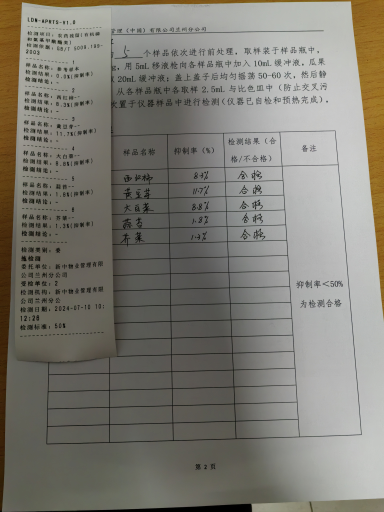 LDW-APNTS-V1.0
检测项目: 有机磷和氨基甲酸酯类
检测依据: GB/T 5009.199-2003
样品名称: 参考样本
检测结果: 0.0%(抑制率)
检测结论: -
样品名称: 西红柿--
检测结果: 8.3%(抑制率)
检测结论: --
样品名称: 黄豆芽--
检测结果: 11.7%(抑制率)
检测结论: --
样品名称: 大白菜--
检测结果: 8.8%(抑制率)
检测结论: --
样品名称: 茴香--
检测结果: 1.8%(抑制率)
检测结论: --
6
样品名称: 芥菜--
检测结果: 1.3%(抑制率)
检测结论: --
检测类别: 委
施检测
委托单位: 新中物业管理有限
公司兰州分公司
受检单位: 2
检测机构: 新中物业管理有限
公司兰州分公
检测日期: 2024-07-10 10:
12:28
检测标准: 50%
管理（中国）有限公司兰州分公司
5 个样品依次进行前处理，取样装于样品瓶中。
用 5mL 移液枪向各样品瓶中加入 10mL 缓冲液，瓜果
20mL 缓冲液；盖上盖子后均匀摇荡 50-60 次，然后静
从各样品瓶中各取样 2.5mL 与比色皿中（防止交叉污
次置于仪器样品中进行检测（仪器已自检和预热完成）。
样品名称 抑制率（%） 检测结果（合格/不合格） 备注
西红柿 8.3% 合格
黄豆芽 11.7% 合格
大白菜 8.8% 合格
茴香 1.8% 合格
芥菜 1.3% 合格
抑制率＜50%
为检测合格
第 2 页